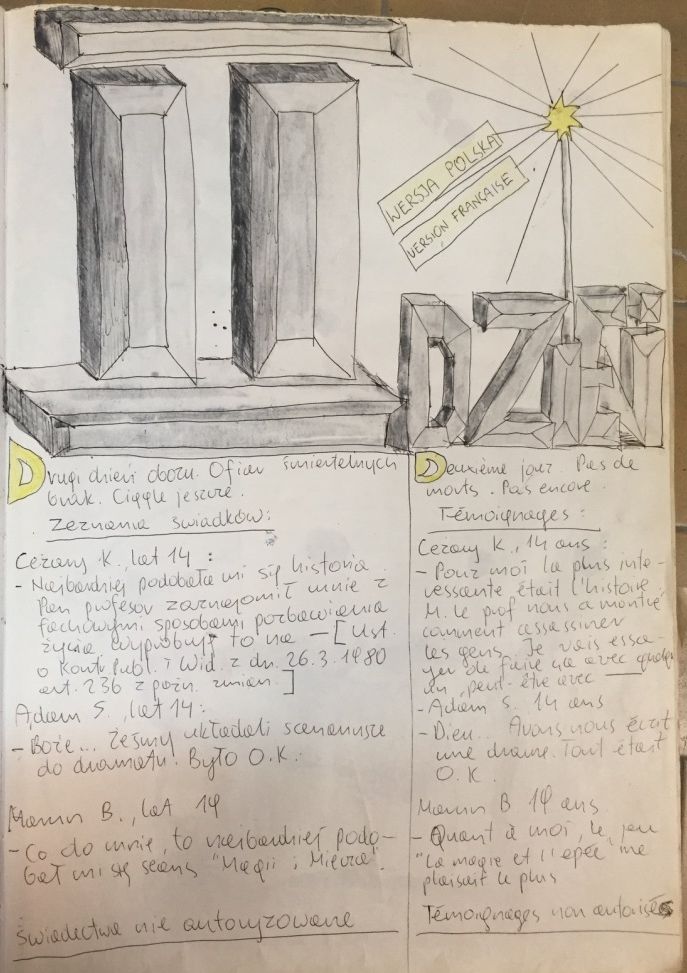 II
WERSJA POLSKA
VERSION FRANÇAISE
DZIEŃ
Drugi dzień obozu. Ofiar śmiertelnych
brak. Ciągle jeszcze.
Zeznania świadków:
Cezary K., lat 14 :
- Najbardziej podobała mi się historia.
Pan profesor zaznajomił mnie z
fachowymi sposobami pozbawiania
życia wypróbuję to na — [Ust.
o kontr. publ. i wid. z dn. 26.3.1980
art. 236 z późn. zmian.]
Adam S., lat 14:
- Boże... Żeśmy układali scenariusze
do dramatu. Było O.K.
Marcin B., lat 14
- Co do mnie, to najbardziej podo-
bał mi się seans "Magii i Miecza".
świadectwa nie autoryzowane
Deuxième jour. Pas de
morts. Pas encore.
Témoignages :
Cezary K., 14 ans :
- Pour moi la plus inte-
ressante était l'histoire.
M. le prof nous a montré
comment assassiner
les gens. Je vais essa-
yer de faire ça avec quelqu
un, peut-être avec —
- Adam S. 14 ans
- Dieu... Avons nous écrit
une drame. Tout était
O.K.
Marcin B. 14 ans.
- Quant à moi, le jeu
"La magie et l'epée" me
plaisait le plus
Témoignages non autorisés